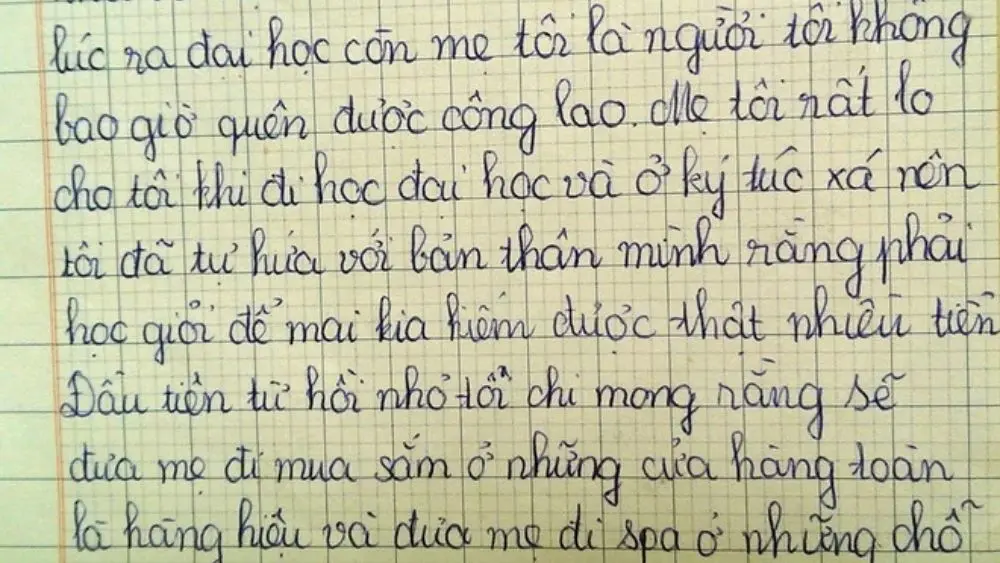 lúc ra đại học còn mẹ tôi là người tôi không
bao giờ quên được công lao. Mẹ tôi rất lo
cho tôi khi đi học đại học và ở ký túc xá nên
tôi đã tự hứa với bản thân mình rằng phải
học giỏi để mai kia kiếm được thật nhiều tiền
Đầu tiên từ hồi nhỏ tôi chỉ mong rằng sẽ
đưa mẹ đi mua sắm ở những cửa hàng toàn
là hàng hiệu và đưa mẹ đi spa ở những chỗ